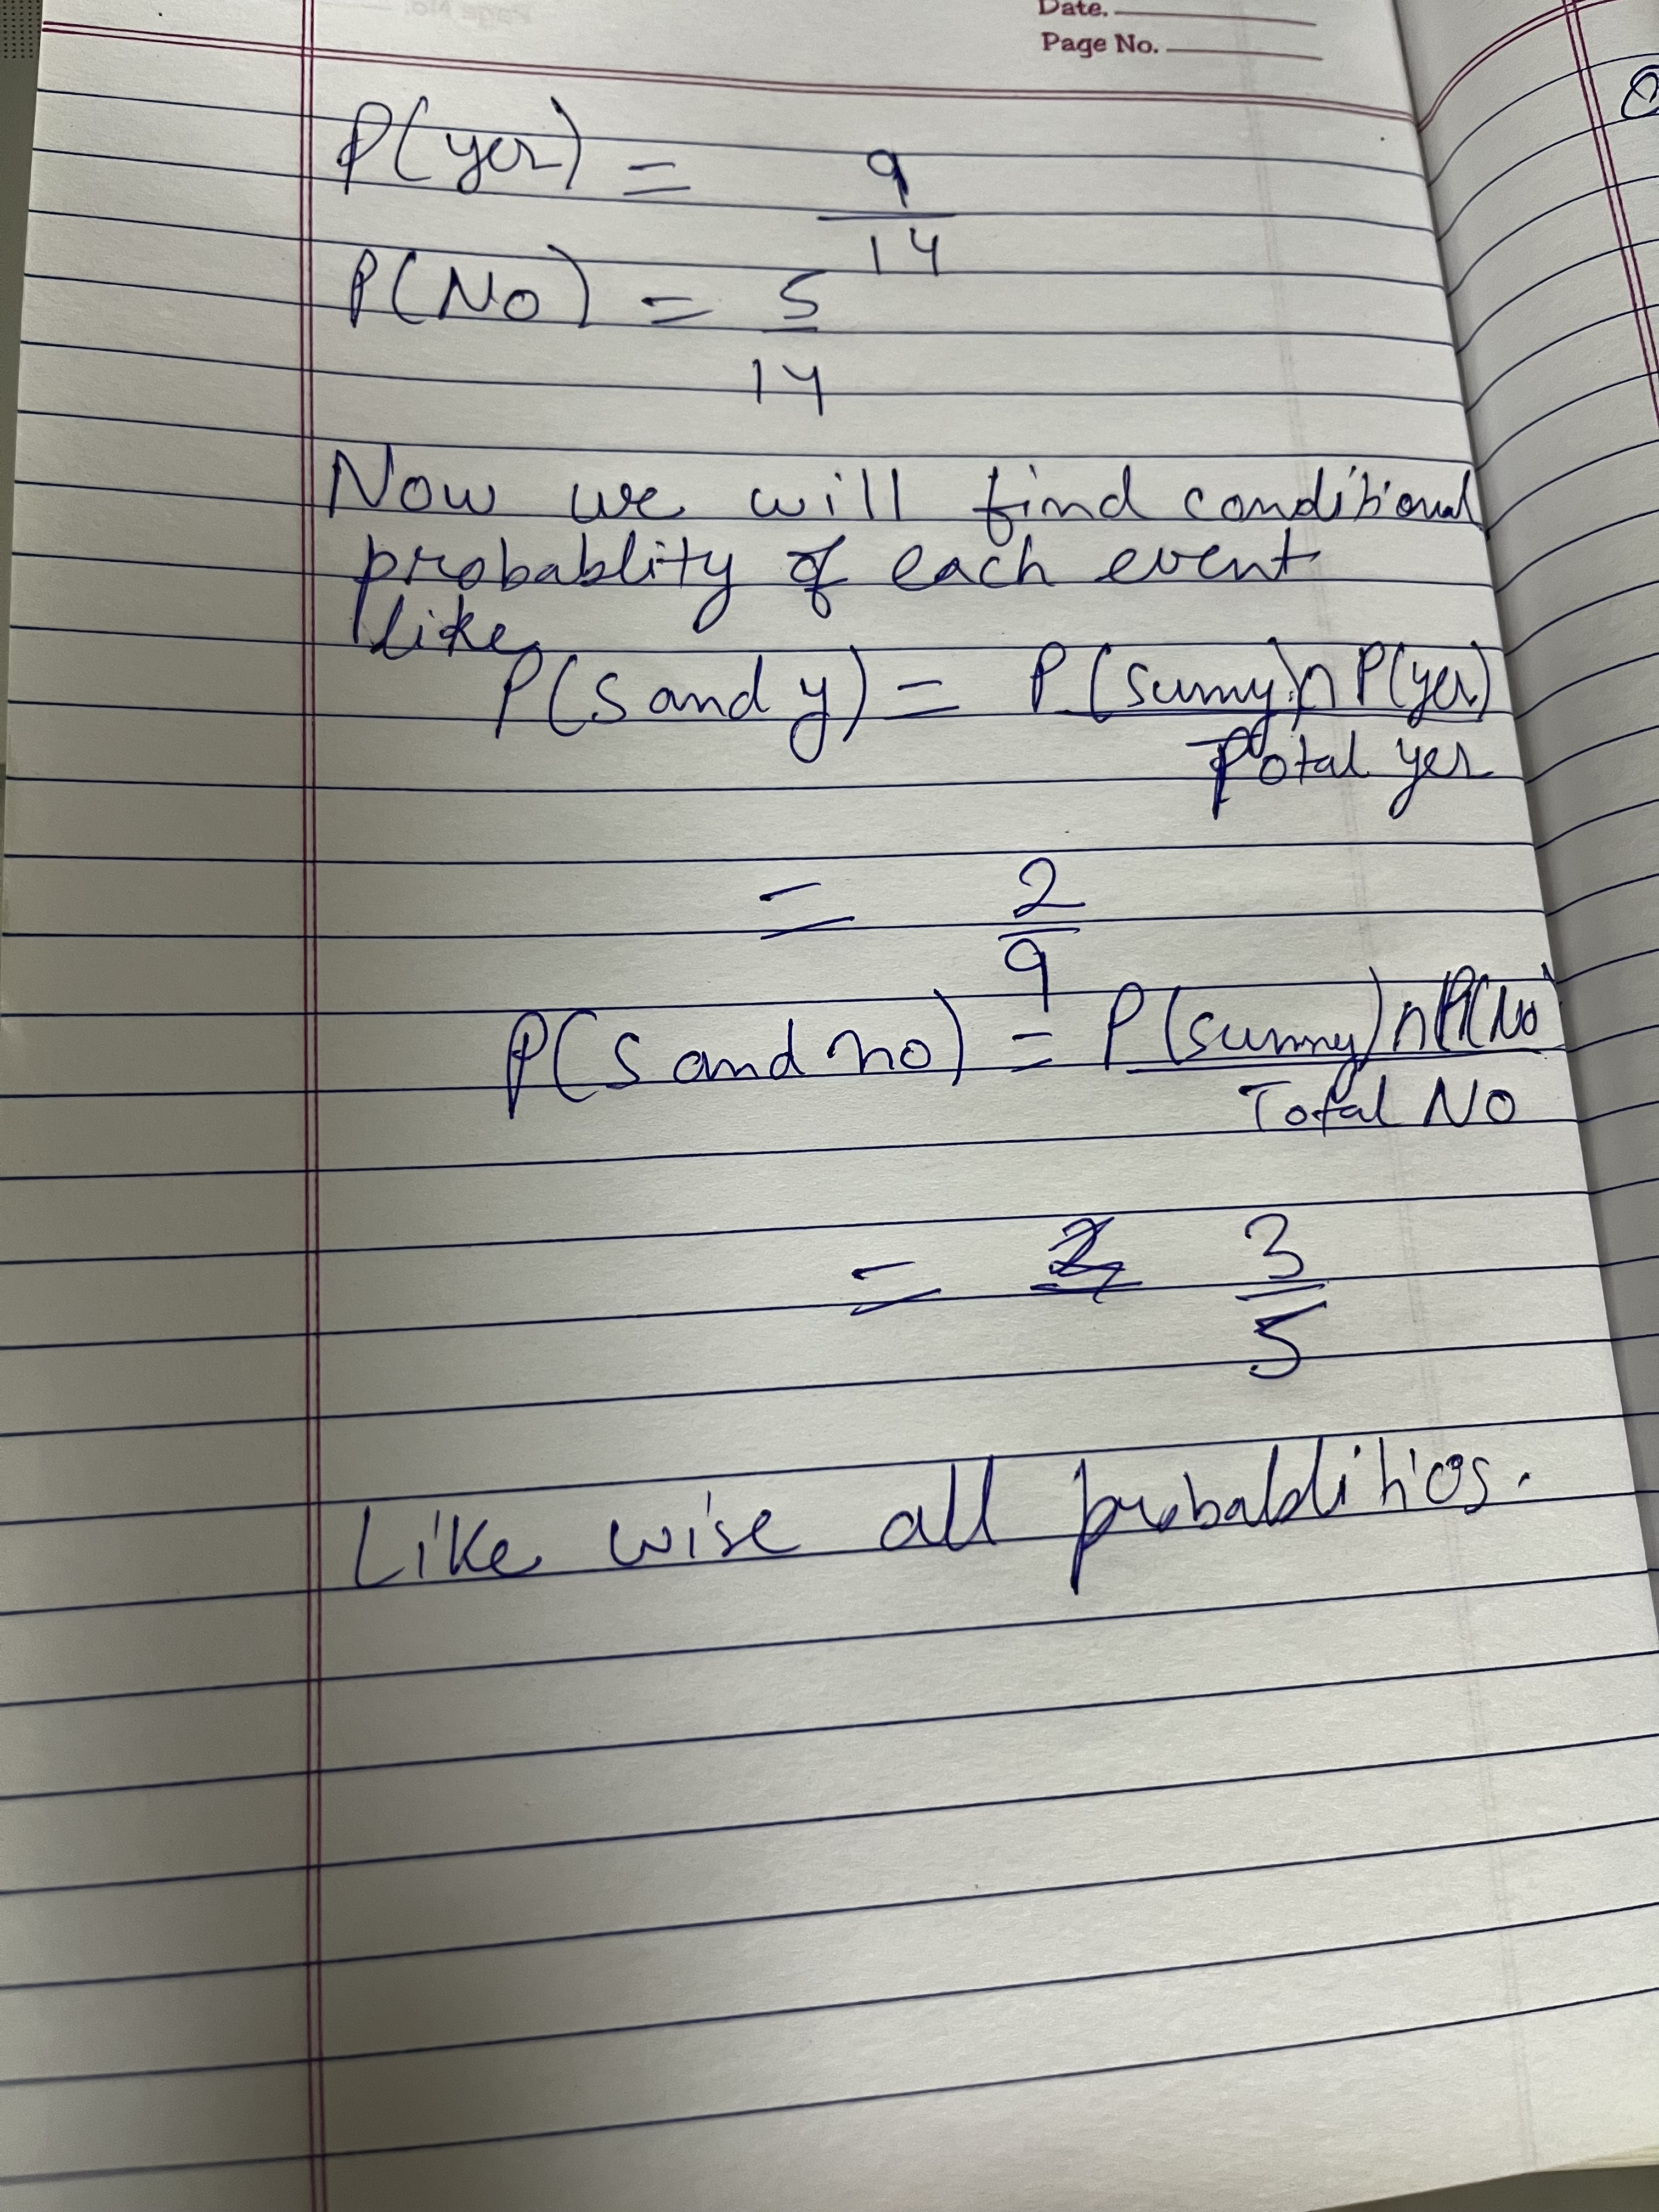 Date.
Page No.
P(yes) = 9/14
P(No) = 5/14
Now we will find conditional
probablity of each event
like
P(S and y) = P(sunny) ∩ P(yes)
Total yes
= 2/9
P(S and no) = P(sunny) ∩ P(No
Total NO
= 3/5
Like wise all probabilities.